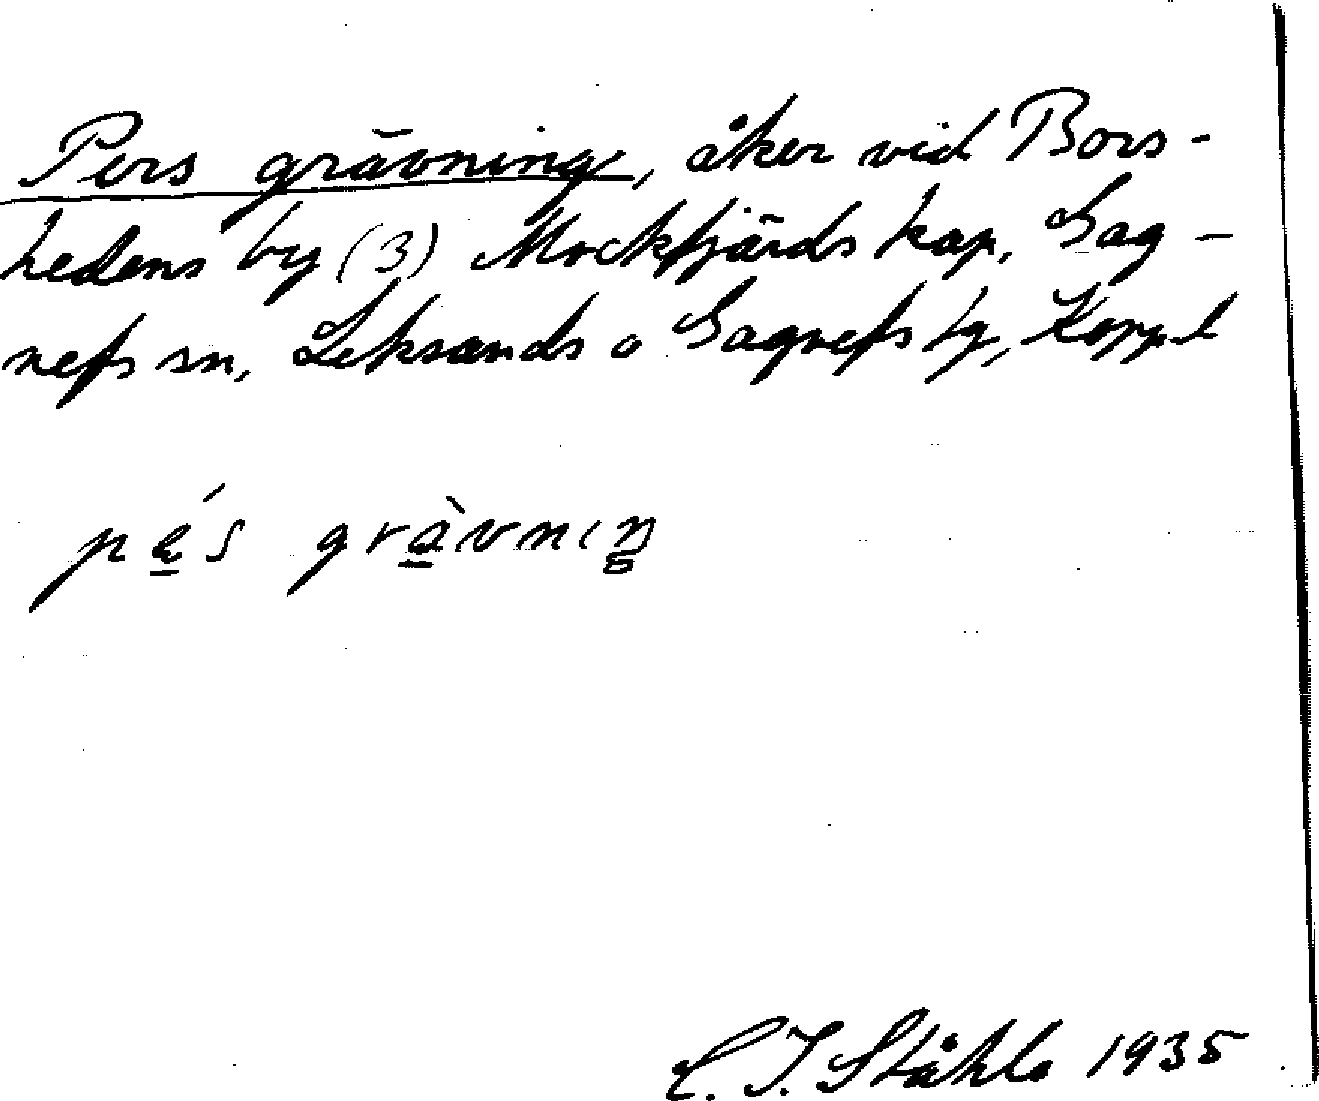 Pers grävning, åker vid Bors-
hedens by (3) Mockfjärds kap, Gag-
nefs sn, Leksands o Gagnefs tg, Koppl
pe̲´s grà̲vniŋ
C. I. Ståhle 1935